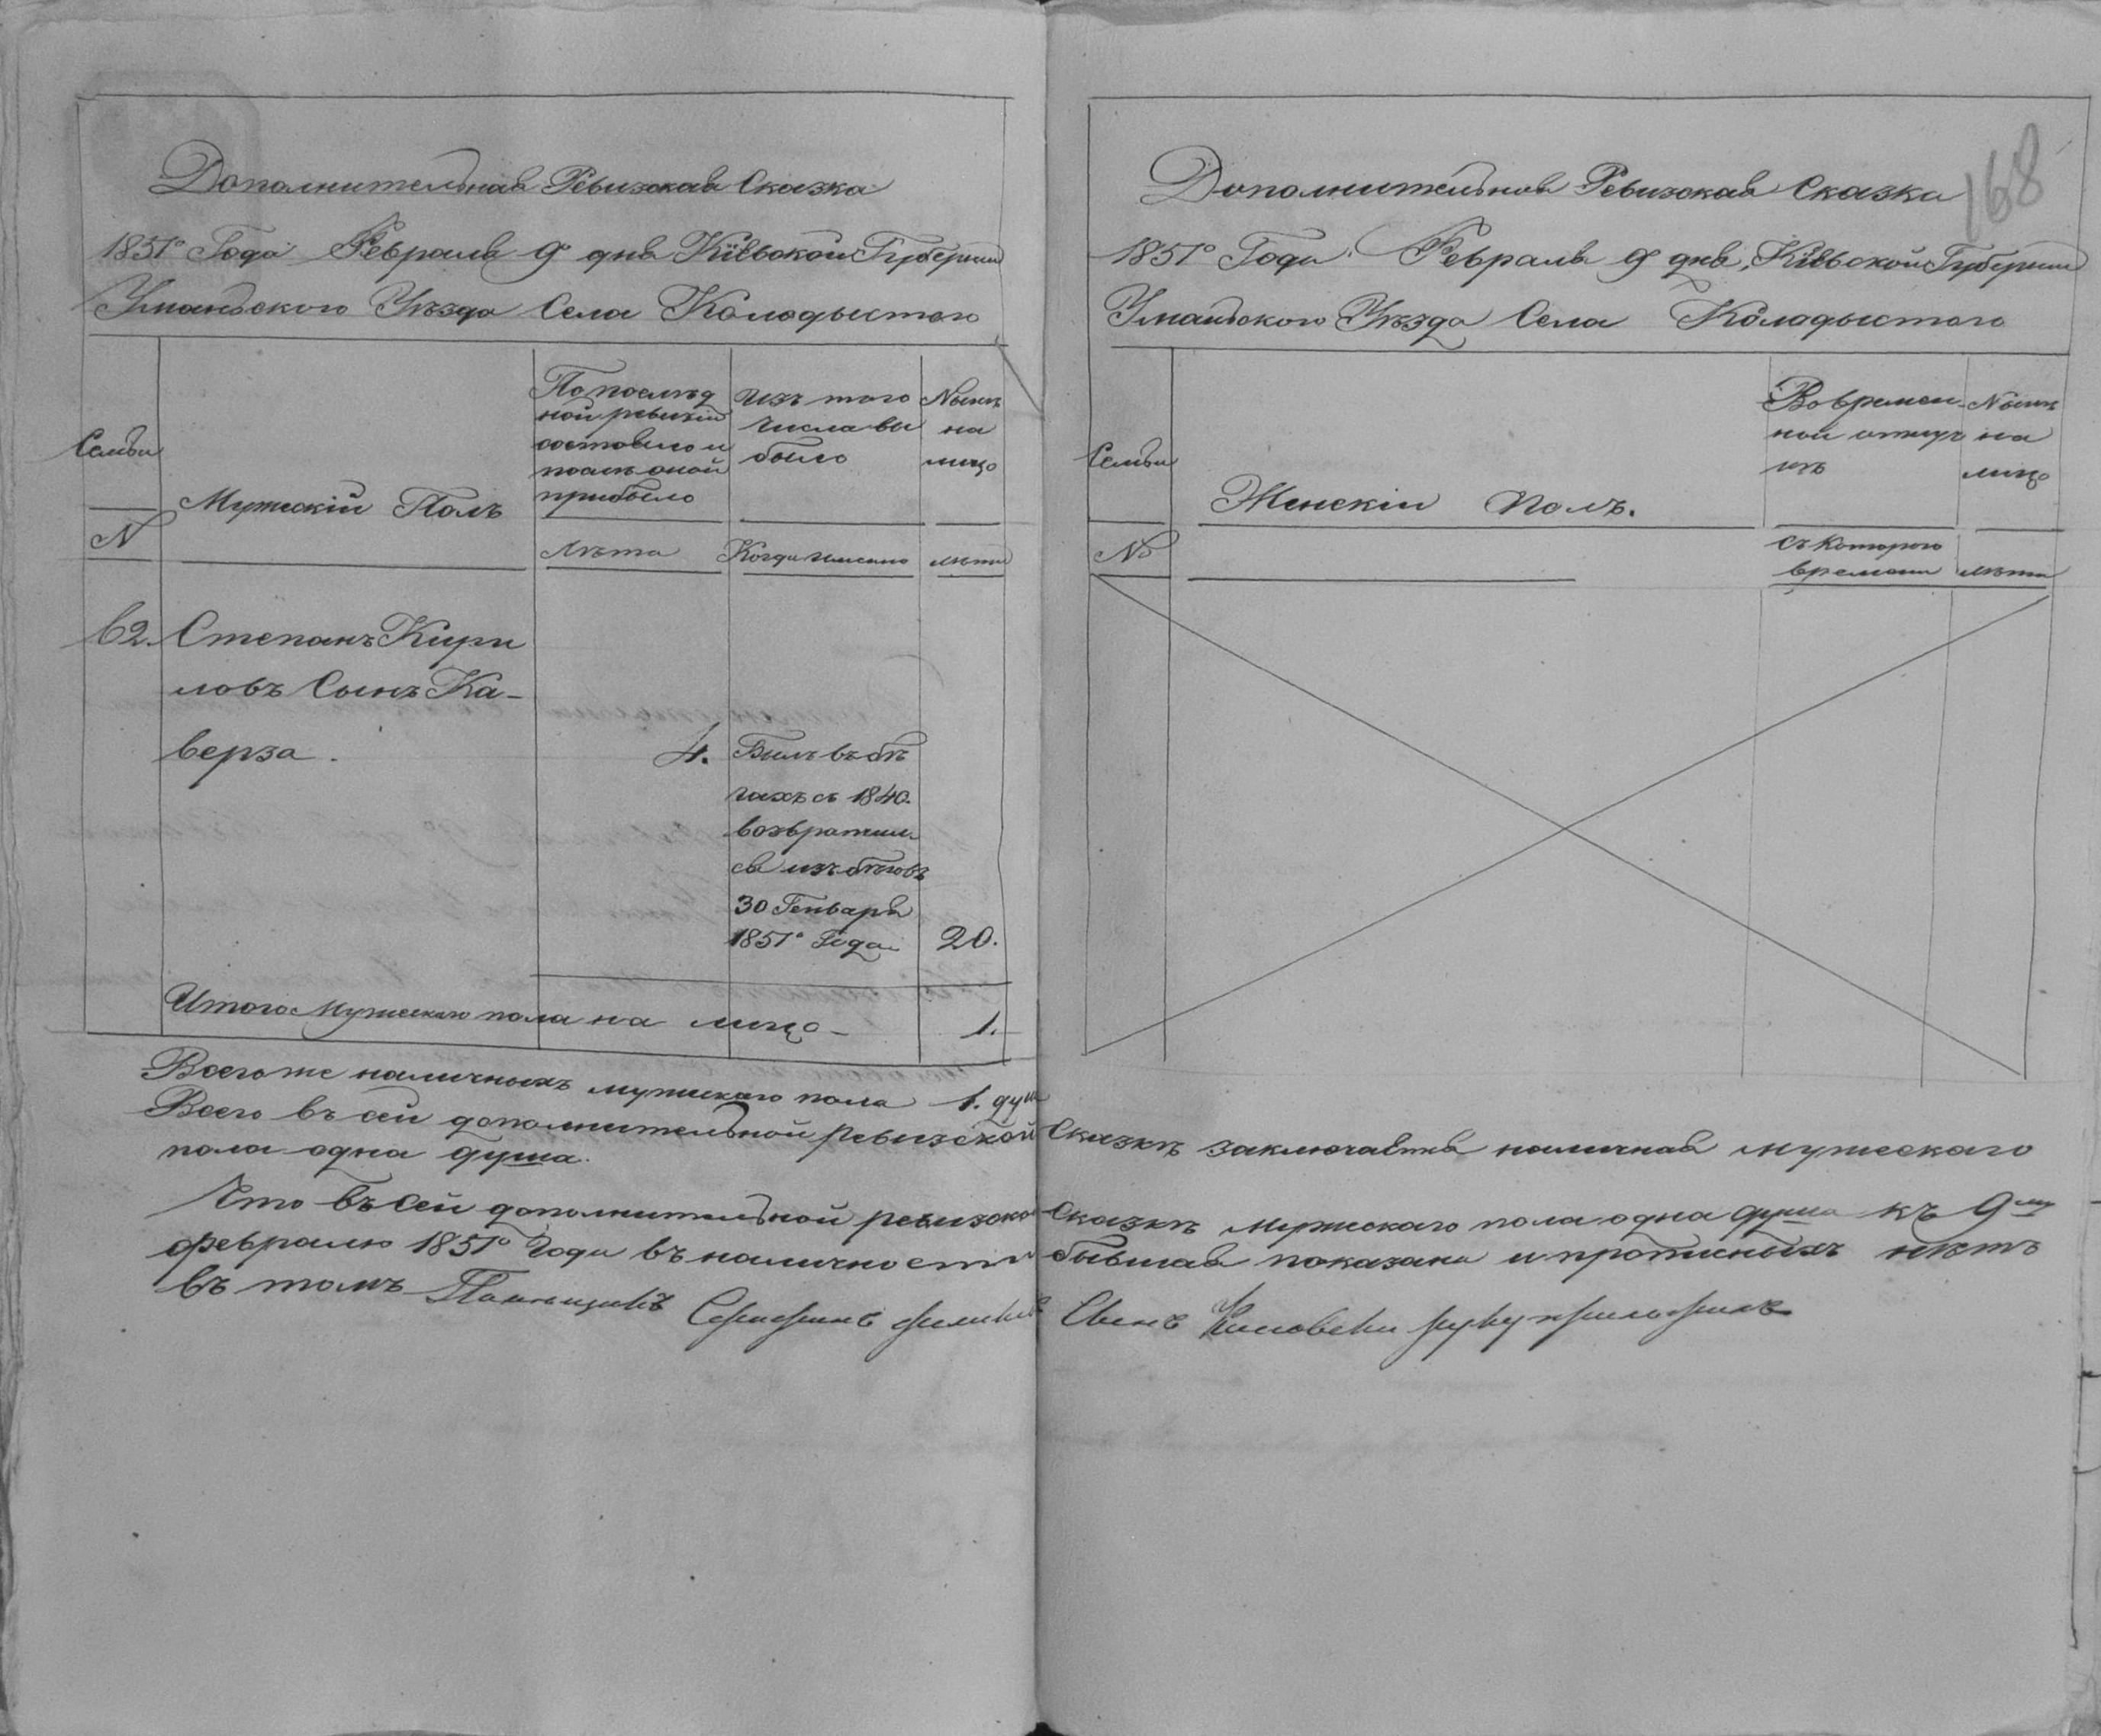 Дополнительная Ревизская Сказка
1851го Года Февраля 9 дня Кіевской Губерніи
Уманьского Уѣзда Села Колодыстого
Семьи
№
Мужескій Полъ
По послѣд
ной ревизіи
состояло и
послѣ оной
прибыло
Лѣта
Изъ того
числа вы
было
Когда именно
Нынѣ
на
лицо
лѣта
62. Степанъ Кири
ловъ Сынъ Ка-
верза.
4.
Былъ въ бѣ
гахъ съ 1840.
возвратил
ся изъ бѣговъ
30 Генваря
1851го Года
20.
Итого Мужескаго пола на лицо — 1.
Всего же наличныхъ мужескаго пола 1. душ
168
Дополнительная Ревизская Сказка
1851го Года Февраля 9 дня, Кіевской Губерніи
Уманьского Уѣзда Села Колодыстого
Семьи
№
Женскій Полъ.
Во времен-
ной отлуч
кѣ
съ котораго
времени
Нынѣ
на
лицо
лѣта
Всего въ сей дополнительной ревизской Сказкѣ заключается наличная мужескаго
пола одна душа.
Что въ сей дополнительной ревизской Сказкѣ мужескаго пола одна душа къ 9му
февралю 1851го Года въ наличности бывшая показана и прописныхъ нѣтъ
въ томъ Помѣщикъ Сынъ руку приложилъ